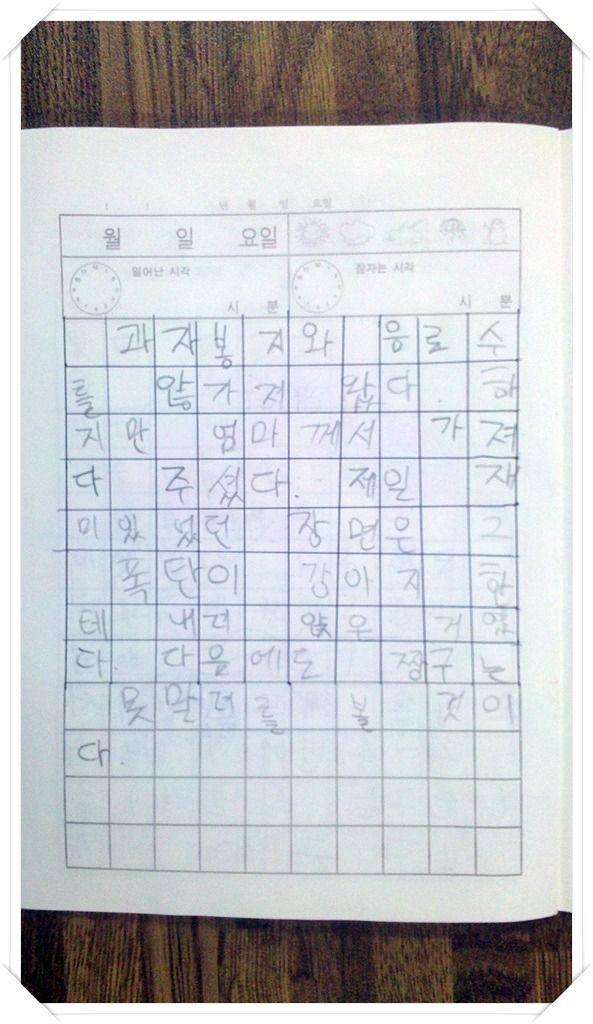 ( . ) 년 월 일 요일
월 일 요일
일어난 시각 잠자는 시각
시 분 시 분
과자봉지와 음료수
를 않가져 왔다. 하
지만 엄마께서 가져
다 주셨다. 제일 재
미있었던 장면은 그
폭탄이 강아지한
테 내려 우 거였
다. 다음에도 짱구는
못말려를 볼 것이
다.